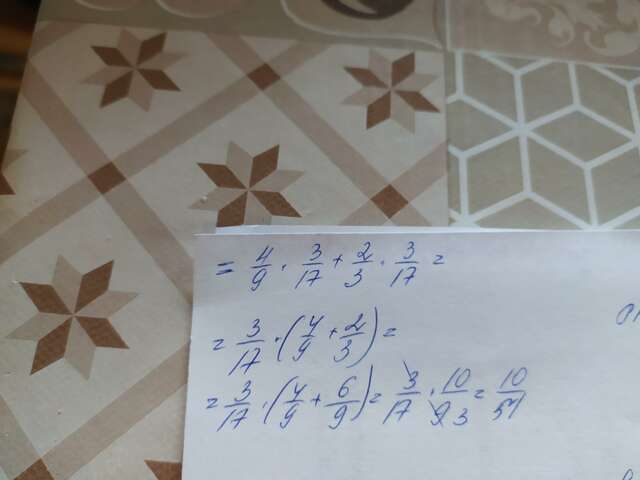 = 4/9 · 3/17 + 2/3 · 3/17 =
= 3/17 · (4/9 + 2/3) =
= 3/17 · (4/9 + 6/9) = 3/17 · 10/9 3 = 10/51